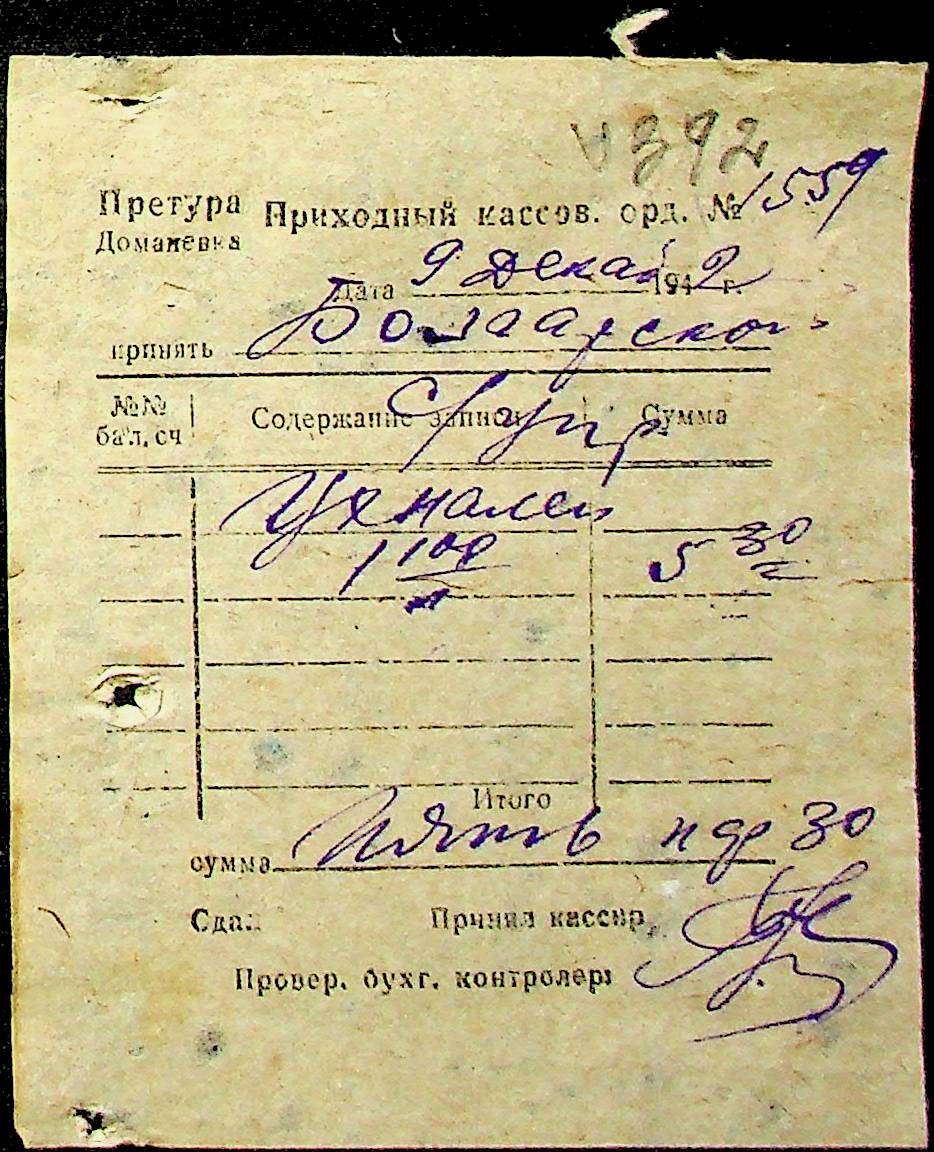 392
Претура Приходный кассов. орд. № 1559
Доманевка
Дата 9 Декаб 1942 г.
принять
№№ бал. сч Содержание записи Сумма
1 100 5 30
Итого
сумма Пять 30
Сдал Принял кассир
Провер. бухг. контролер